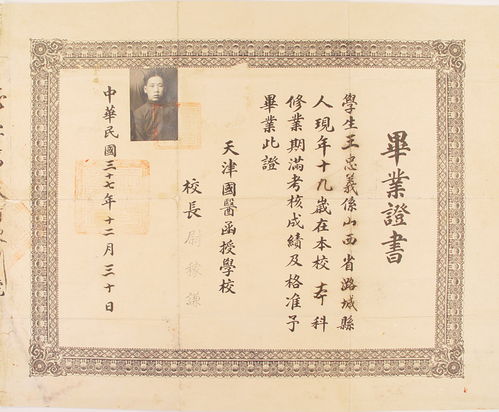 畢業證書
學生王忠義係山西省潞城縣
人現年十九歲在本校本科
修業期滿考核成績及格准予
畢業此證
天津國醫函授學校
校長尉稼謙
中華民國三十七年十二月三十日